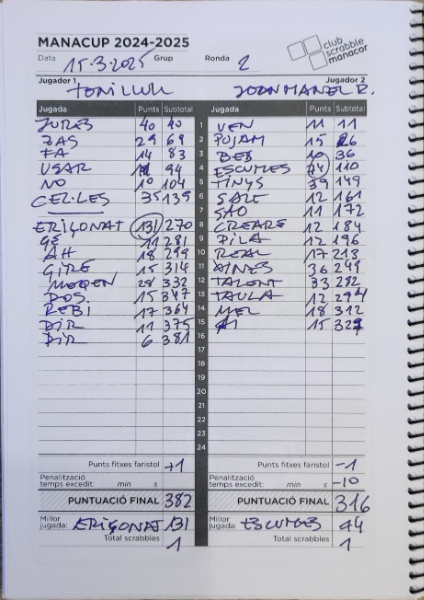 MANACUP 2024-2025
club
scrabble
manacor
Data 15.3.2025 Grup Ronda 2
Jugador 1 TONI LLULL JOAN MANEL R. Jugador 2
Jugada Punts Subtotal Jugada Punts Subtotal
JURES 40 40 1 VEN 11 11
ZAS 29 69 2 PUJAM 15 26
FA 14 83 3 BEB 10 36
USAR 11 94 4 74 110
NO 10 104 5 TINYS 39 149
CEL·LES 35 139 6 SALI 12 161
7 SAO 11 172
ERIÇONAT 131 270 8 CREARE 12 184
GE 11 281 9 PILA 12 196
AH 18 299 10 REAL 17 213
GIRE 15 314 11 AINES 36 249
28 332 12 TALONT 33 282
DOS 15 347 13 TAULA 12 294
REBI 17 364 14 MEL 18 312
DIR 11 375 15 15 327
DIR 6 381 16
17
18
19
20
21
22
23
24
Punts fitxes faristol +1 Punts fitxes faristol -1
Penalització
temps excedit: min s Penalització
temps excedit: min s -10
PUNTUACIÓ FINAL 382 PUNTUACIÓ FINAL 316
Millor
jugada: ERIÇONAT 131 Millor
jugada: 74
Total scrabbles 1 Total scrabbles 1